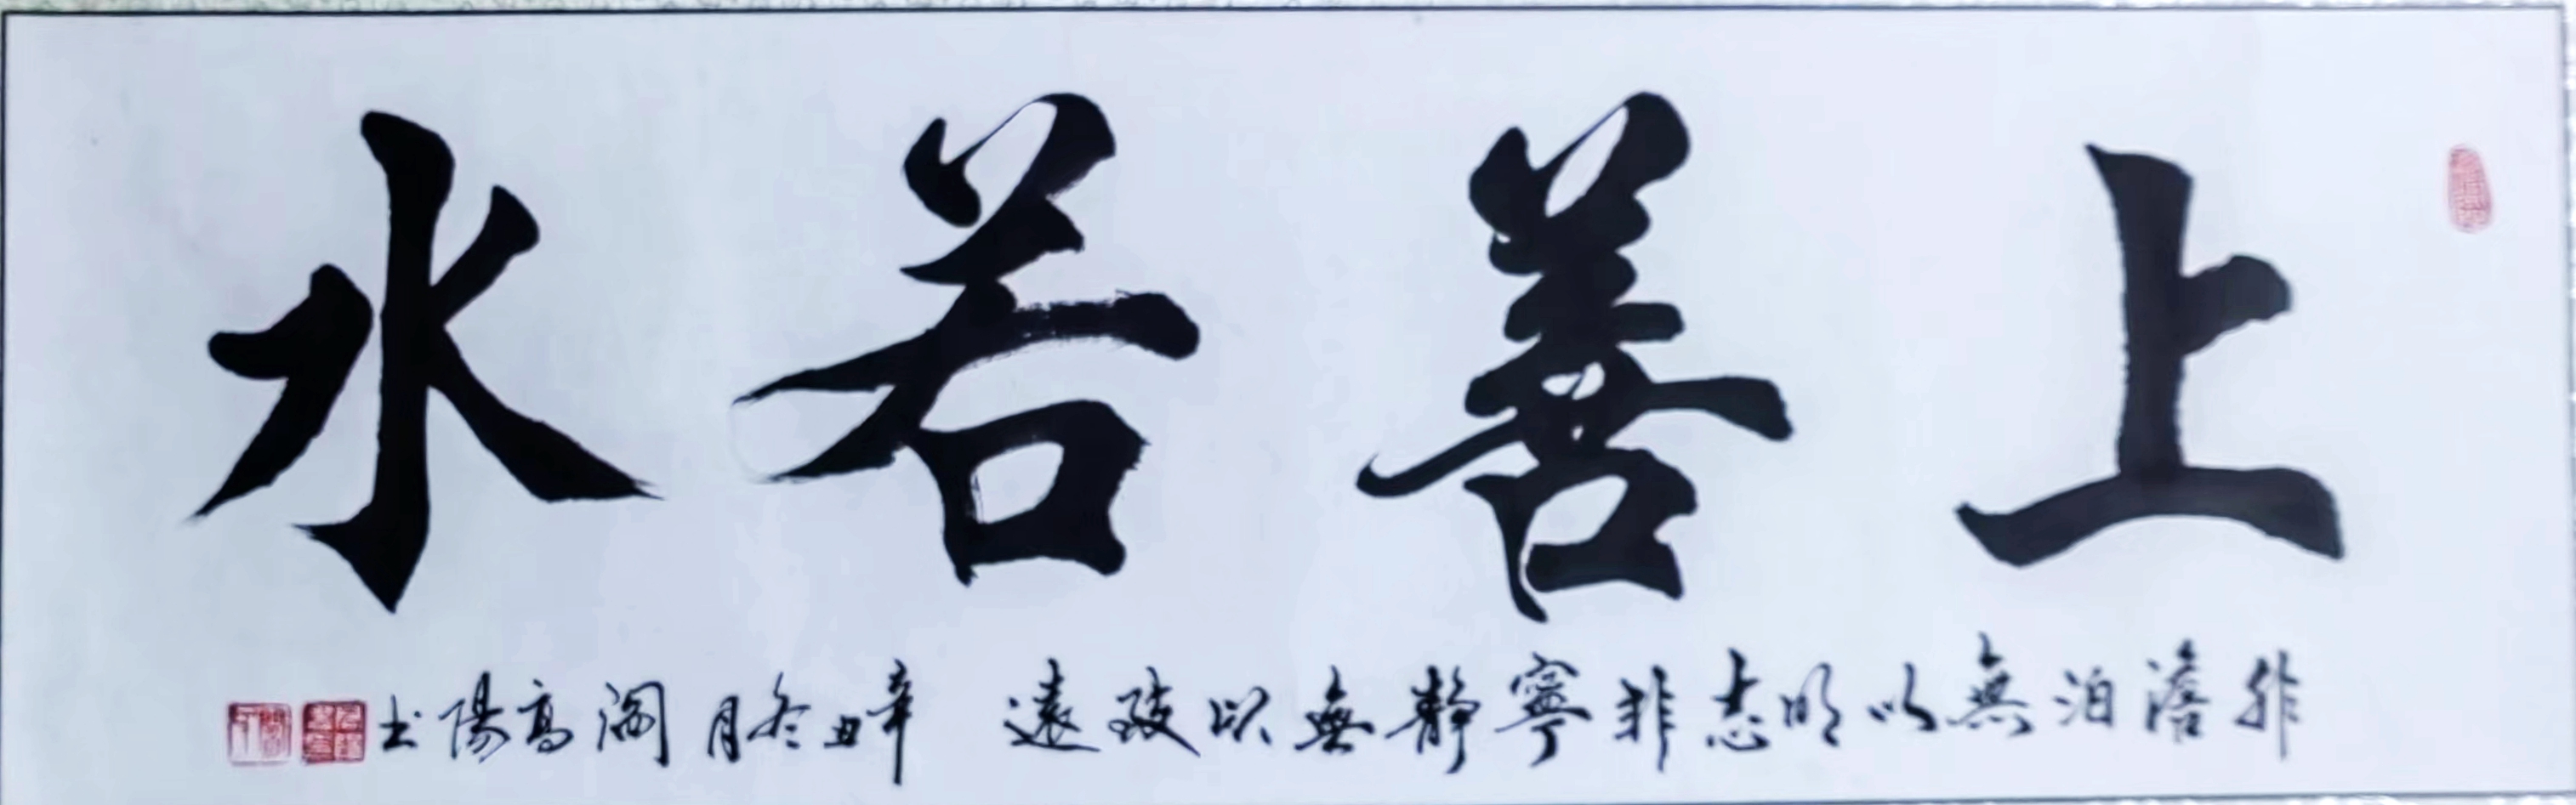 上善若水
非澹泊無以明志非寧靜無以致遠 辛丑冬月 閣高陽书